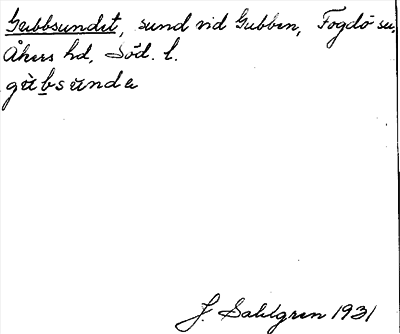 Gubbsundet, sund vid Gubben, Fogdö sn,
Åkers hd, Söd. l.
gùbsùndə
J. Sahlgren 1931